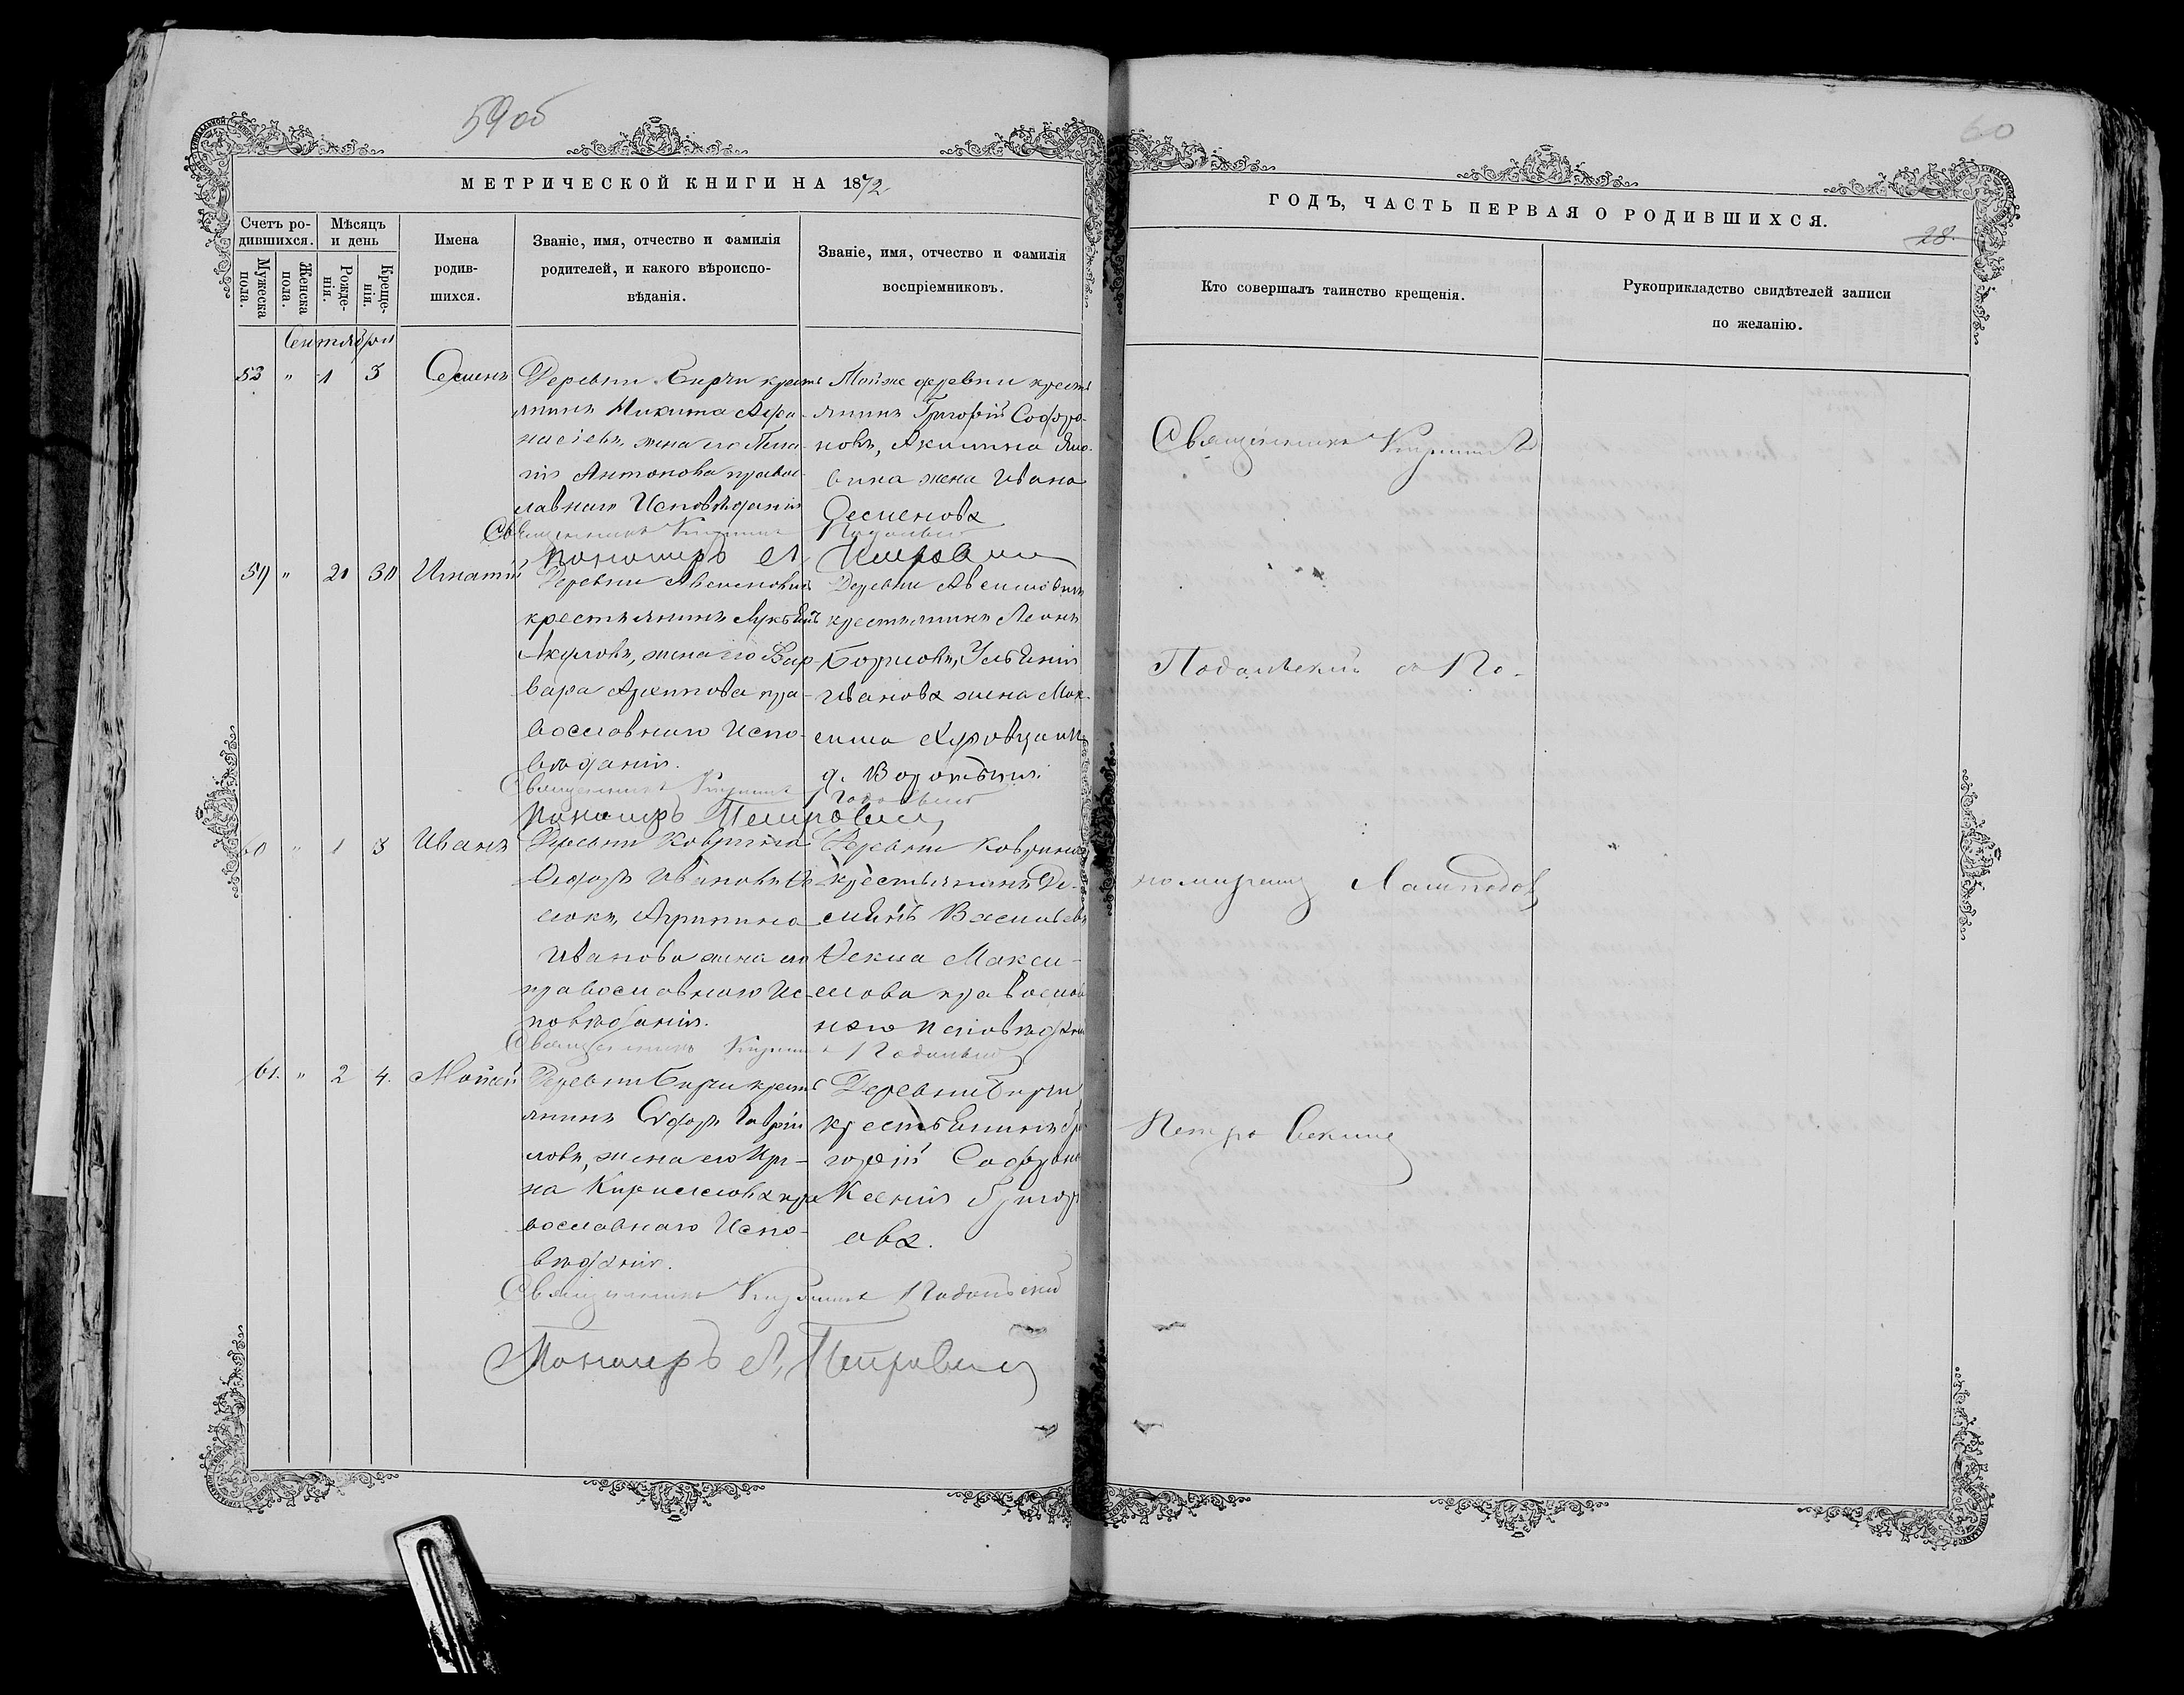 59 об
МЕТРИЧЕСКОЙ КНИГИ НА 1872
Счетъ ро-
дившихся.
Мѣсяцъ
и день
Мужеска
пола.
Женска
пола.
Рожде-
нія.
Креще-
нія.
Имена
родив-
шихся.
Званіе, имя, отчество и фамилія
родителей, и какого вѣроиспо-
вѣданія.
Званіе, имя, отчество и фамилія
воспріемниковъ.
Сентября
53 " 1 3 Семенъ
Деревни Бирчи кресть
янинъ Никита Афа-
насіевъ, жена его
Антонова правос
лавнаго Исповѣданія
Тойже деревни кресть
янинъ Григорій Софро-
новъ, Акилина
жена Ивана
Семенова
Священникъ Кириллъ Подольскій
Пономарь Л. Петровскій
59 " 21 30 Игнатій
Деревни
крестьянинъ Лукьянъ
Акуловъ, жена его Вар-
вара Архипова пра-
вославнаго Испо-
вѣданія.
Деревни
крестьянинъ Леонъ
Борисовъ, Ульянія
Иванова жена Мак-
сима
д.
Священникъ Кириллъ Подольскій
Пономарь Петровскій
60 " 1 3 Иванъ
Деревни Коврина
Федоръ Ивановъ
Агрипина
Иванова жена его
православнаго Ис-
повѣданія.
Деревни Коврина
крестьянинъ Де-
мьянъ Васильевъ
Фекла Макси-
мова православ
наго исповѣдан
Священникъ Кириллъ Подольскій
61. " 2 4. Мойсей
Деревни Бирчи кресть
янинъ Сидоръ Гаврі
ловъ, жена его Ири-
на Кириллова пра
вославнаго Испо-
вѣданія.
Деревни Бирчи
крестьянинъ Гри
горій Софроно
Ксенія Григор
ова.
Священникъ Кириллъ Подольскій
Пономарь Л. Петровскій
60
ГОДЪ, ЧАСТЬ ПЕРВАЯ О РОДИВШИХСЯ.
28.
Кто совершалъ таинство крещенія.
Рукоприкладство свидѣтелей записи
по желанію.
Священникъ Кириллъ
Подольскій съ По-
номаремъ
Петровскимъ